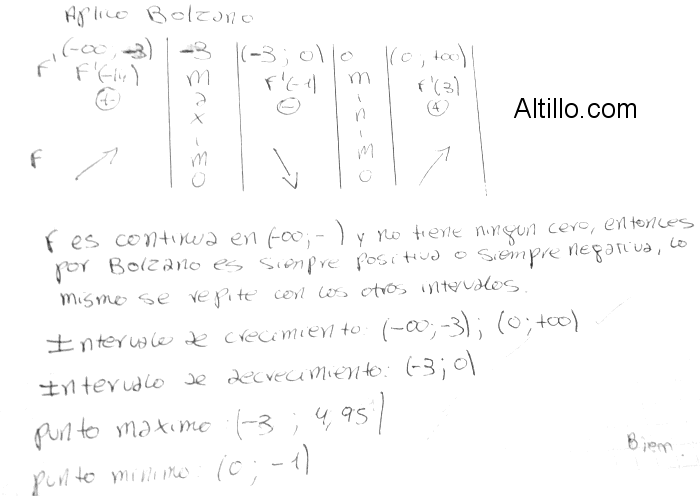 Aplico Bolzano
F' (-∞, -3) | -3 | (-3; 0) | 0 | (0; +∞)
F'(-4) ⊕ | máximo | F'(-1) ⊖ | mínimo | F'(3) ⊕
F ↗ ↘ ↗
Altillo.com
F es continua en (-∞; - ) y no tiene ningun cero, entonces
por Bolzano es siempre positiva o siempre negativa, lo
mismo se repite con los otros intervalos.
Intervalo de crecimiento: (-∞; -3); (0; +∞)
Intervalo de decrecimiento: (-3; 0)
punto maximo: (-3 ; 4,95)
punto minimo: (0; -1)
Bien.